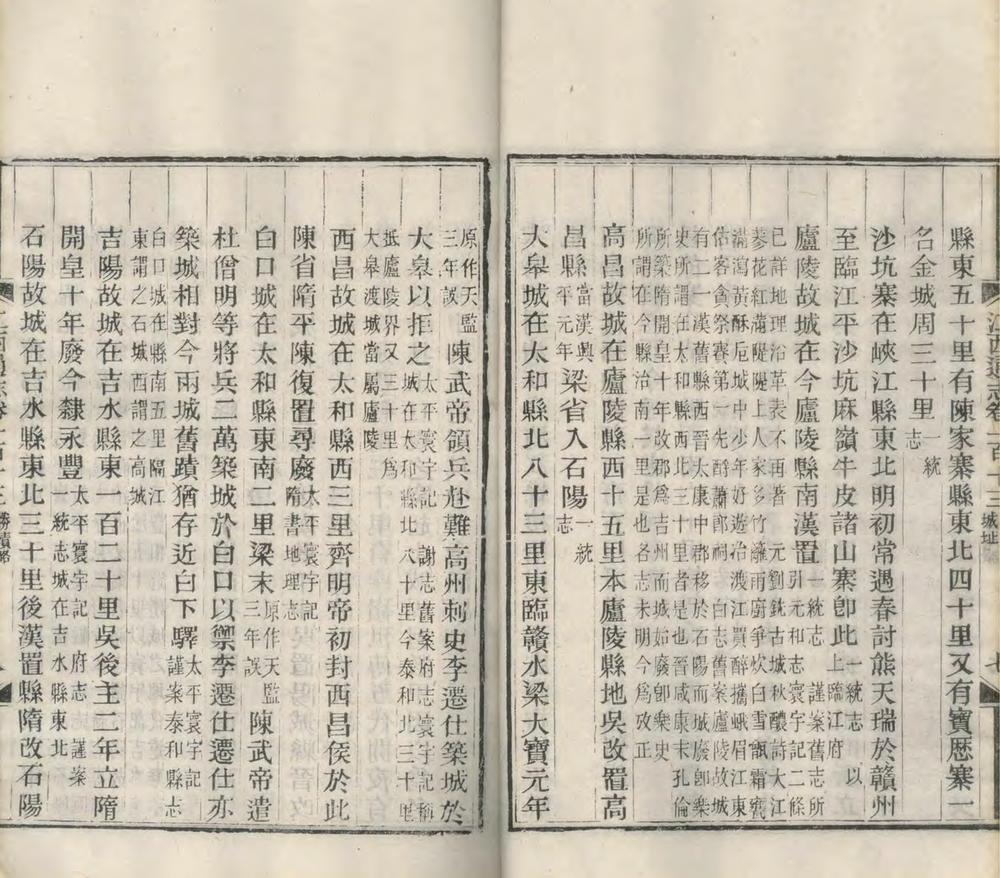 江西通志卷二百一十三 城址 七
縣東五十里有陳家寨縣東北四十里又有寶歷寨一
名金城周三十里 一統志
沙坑寨在峽江縣東北明初常遇春討熊天瑞於贛州
至臨江平沙坑麻嶺牛皮諸山寨卽此 一統志 以上臨江府
廬陵故城在今廬陵縣南漢置 一統志 謹案舊志所引元和志寰宇記二條
已詳地理沿革表不再著 元劉銑古城秋酣詩大江
蓼花紅滿隄隄上人家多竹籬雨廚爭炊白雪甑霜甕
滿瀉黃酥卮城中少年好遊冶渡江買醉攜蛾眉江東
估客貪祭賽第一先酹蕭郎祠 白志舊案廬陵故城
有二一漢舊縣西晉大康中郡移於石陽而城廢卽樂
史所謂在太和縣西北三十里者是也晉咸康末孔倫
所築隋開皇十年改郡爲吉州而城始廢卽樂史
所謂在今縣治南一里是也各志未明今爲改正
高昌故城在廬陵縣西十五里本廬陵縣地吳改置高
昌縣 當漢興平元年 梁省入石陽 一統志
大皋城在太和縣北八十三里東臨贛水梁大寶元年
原作天監三年誤 陳武帝領兵赴難高州刺史李遷仕築城於
大皋以拒之 太平寰宇記 謝志舊案府志寰宇記稱城在太和縣北八十里今泰和北三十里
抵廬陵界又三十里爲
大皋渡城當屬廬陵
西昌故城在太和縣西三里齊明帝初封西昌侯於此
陳省隋平陳復置尋廢 太平寰宇記隋書地理志
白口城在太和縣東南二里梁末 原作天監三年誤 陳武帝遣
杜僧明等將兵二萬築城於白口以禦李遷仕遷仕亦
築城相對今兩城舊蹟猶存近白下驛 太平寰宇記謹案泰和縣志
白口城在縣南五里隔江
東謂之石城西謂之高城
吉陽故城在吉水縣東一百二十里吳後主二年立隋
開皇十年廢今隸永豐 太平寰宇記 府志 謹案一統志城在吉水縣東北
石陽故城在吉水縣東北三十里後漢置縣隋改石陽